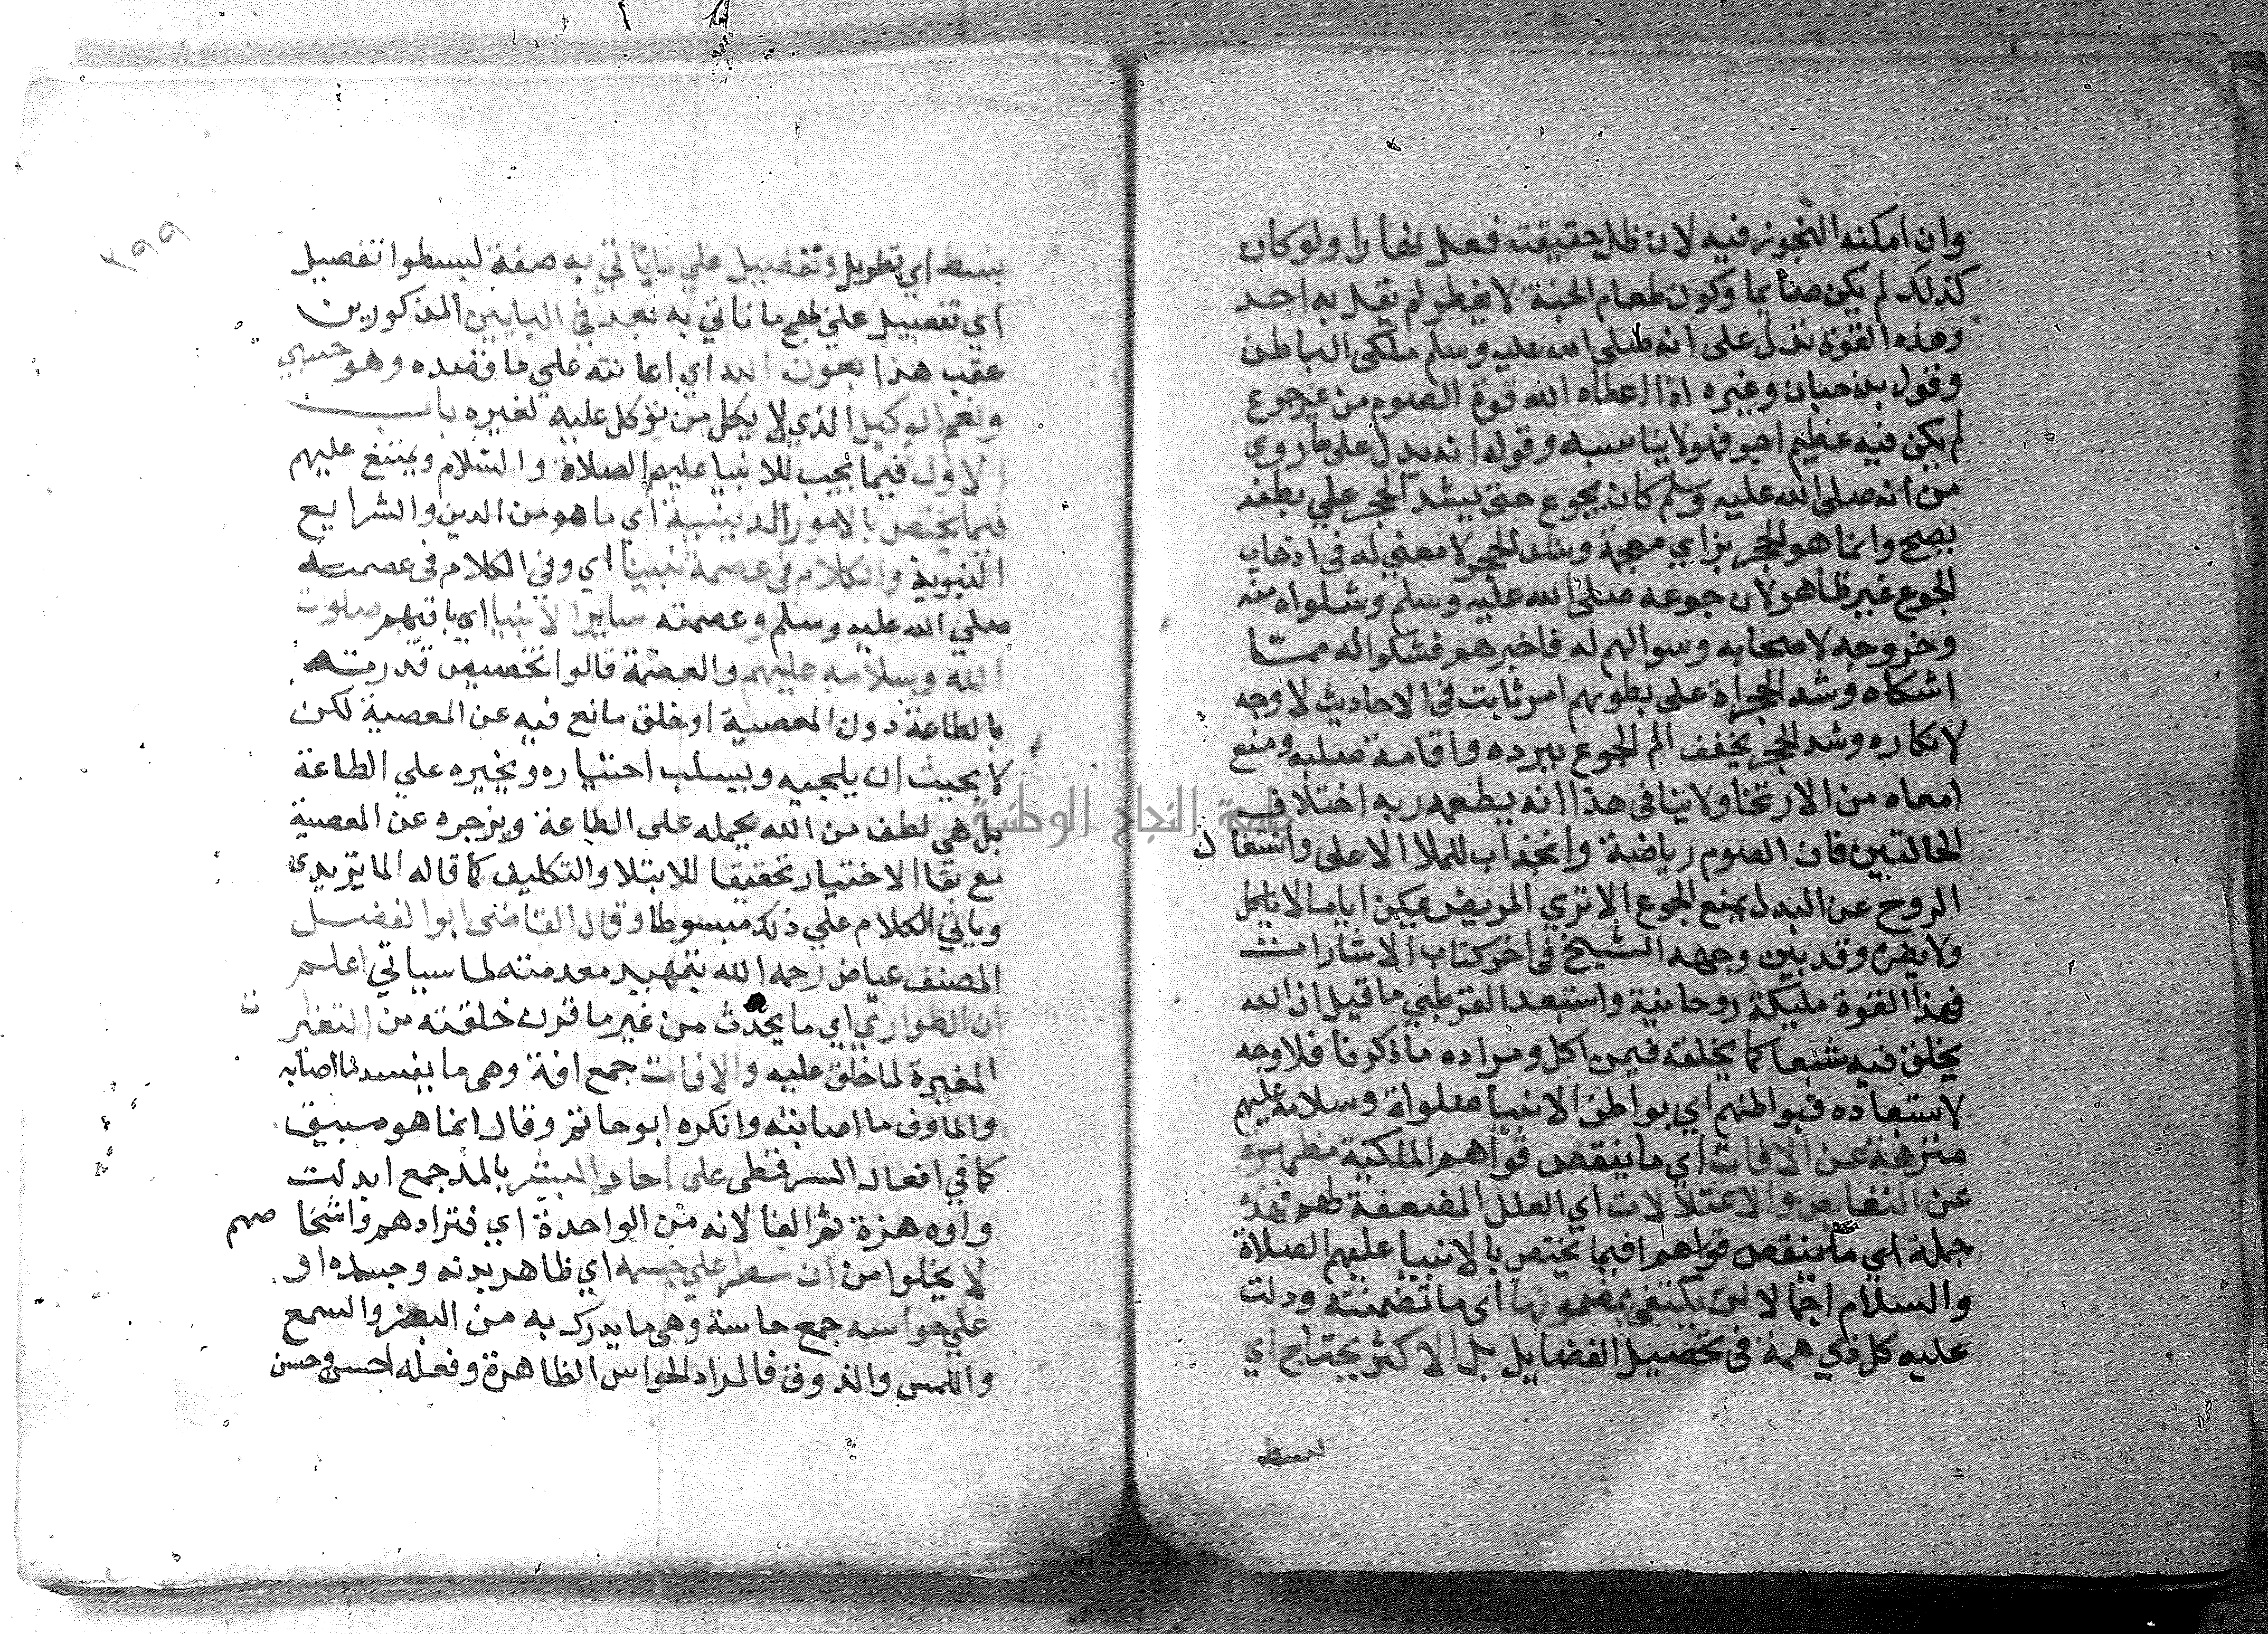 وان امكنه التجوز فيه لان ظل حقيقته فعل نهارا ولو كان
كذلك لم يكن صايما وكون طعام الجنة لا يفطر لم يقل به احد
وهذه القوة تدل على انه صلى الله عليه وسلم ملكى الباطن
وقول بن حبان وغيره اذا اعطاه الله قوة الصوم من غير جوع
لم يكن فيه عظيم اجر فهو لا يناسبه وقوله انه يدل على ما روي
من انه صلى الله عليه وسلم كان يجوع حتى يشد الحجر علي بطنه
يصح وانما هو الحجز بزاي معجمة وشد الحجر لا معني له في اذهاب
الجوع غير ظاهر لان جوعه صلى الله عليه وسلم وشكواه منه
وخروجه لاصحابه وسوالهم له فاخبرهم فشكوا له مما
اشكاه وشد الحجارة على بطونهم امر ثابت في الاحاديث لا وجه
لانكاره وشد الحجر يخفف الم الجوع ببرده واقامة صلبه ومنع
امعاه من الارتخا ولا ينافى هذا انه يطعمه ربه اختلاف
الحالتين فان الصوم رياضة وانجذاب للملا الاعلى واشتغال
الروح عن البدل يمنع الجوع الا تري المريض يمكن اياما لا ياكل
ولا يضره وقد بين وجهه الشيخ فى اخر كتاب الاشارات
فهذا القوة مليكة روحانية واستبعد القرطبي ما قيل ان الله
يخلق فيه شبعا كما يخلقه فيمن اكل ومراده ما ذكرنا فلا وجه
لاستبعاده فبواطنهم اي بواطن الانبيا صلواة وسلامه عليهم
منزهة عن الافات اي ما ينقص قواهم الملكية مطهرة
عن النقايص والاعتلالات اي العلل المضعفة لهم فهذه
جملة اي ما ينقص قواهم فيما يختص بالانبيا عليهم الصلاة
والسلام اجمالا لن يكتفى بمضمونها اى ما تضمنته ودلت
عليه كل ذي همة فى تحصيل الفضايل بل الاكثر يحتاج اي
لبسط
٣٩٩
بسط اي تطويل وتفصيل علي ما ياتي به صفة لبسط وا تفصيل
اي تفصيل علي نهج ما ناتي به بعد في البابين المذكورين
عقب هذا بعون الله اي اعانته علي ما قصده وهو حسبي
ونعم الوكيل الذي لا يكل من توكل عليه لغيره باب
الاول فيما يجب للانبيا عليهم الصلاة والسلام ويمتنع عليهم
فيما يختص بالامور الدينية اي ما هو من الدين والشرايع
النبوية والكلام في عصمة نبينا اي وفي الكلام في عصمته
صلي الله عليه وسلم وعصمته ساير الانبيا اي باقيهم صلوات
الله وسلامه عليهم والعصمة قالوا تخصيص قدرته
بالطاعة دون المعصية او خلق مانع فيه عن المعصية لكن
لا بحيث ان يلجيه ويسلب اختياره ويخيره علي الطاعة
بل هى لطف من الله يحمله على الطاعة ويزجره عن المعصية
مع بقا الاختيار تحقيقا للابتلا والتكليف كما قاله الماتريدى
وياتي الكلام علي ذلك مبسوطا وقال القاضى ابو الفضل
المصنف عياض رحمه الله بتمهيد مقدمته لما سياتي اعلم
ان الطواري اي ما يحدث من غير ما قرن خلقته من التغيرات
المغيرة لما خلق عليه والافات جمع افة وهى ما يفسد ما اصابه
والماوف ما اصابته وانكره ابو حاتم وقال انما هو مييف
كما في افعال السرقسطى على احاد البشر بالمد جمع ابدلت
واوه همزة ثم الفا لانه من الواحدة اي فترادهم واشخاصهم
لا يخلوا من ان تطر علي جسمه اي ظاهر بدنه وجسده او
علي حواسه جمع حاسة وهى ما يدرك به من البصر والسمع
واللمس والذوق فالمراد الحواس الظاهرة وفعله احس وحس
جامعة النجاح الوطنية